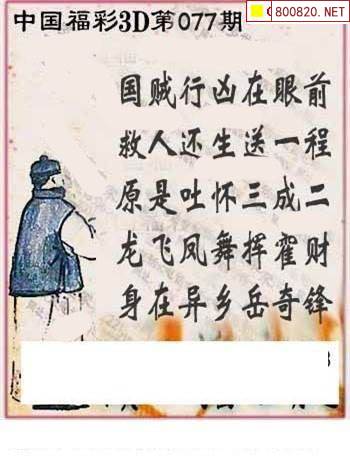 中国福彩3D第077期
800820.NET
国贼行凶在眼前
救人还生送一程
原是吐怀三成二
龙飞凤舞挥霍财
身在异乡岳奇锋